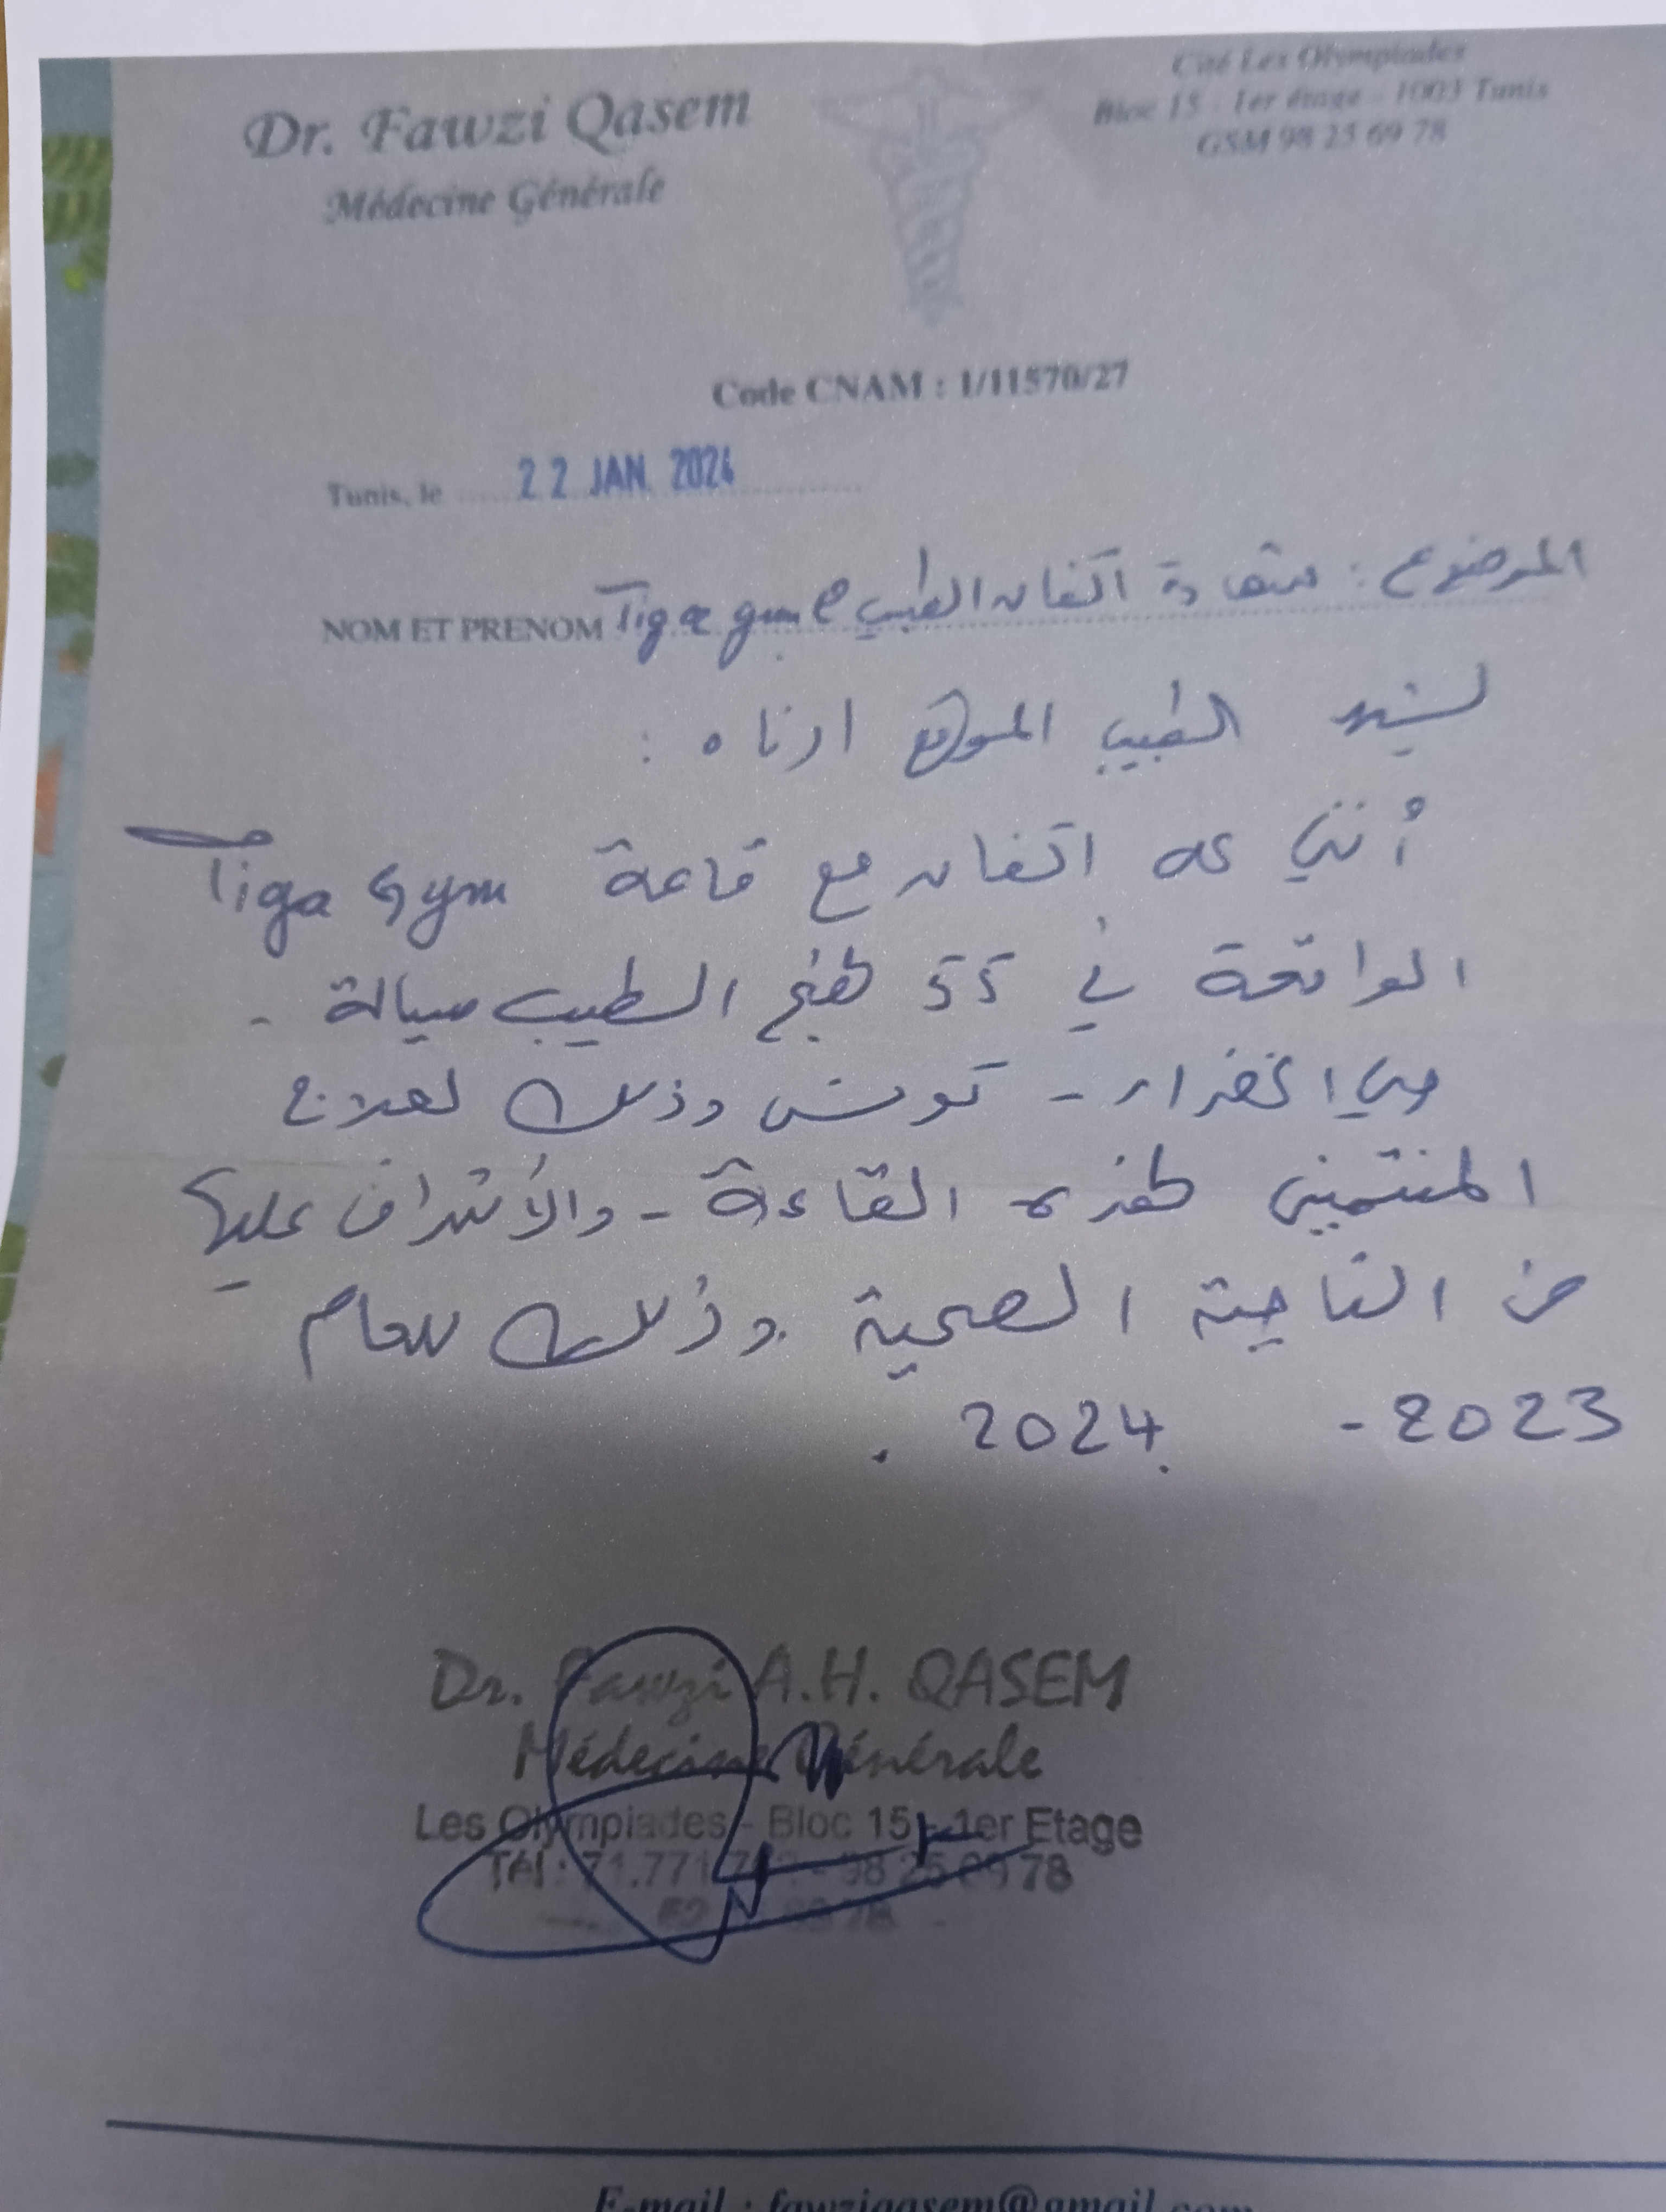 Dr. Fawzi Qasem
Médecine Générale
Cité Les Olympiades
Bloc 15 - 1er étage - 1003 Tunis
GSM 98 25 69 78
Code CNAM : 1/11570/27
Tunis, le 22 JAN. 2024
الموضوع : شهادة اتفاق الطبيب
NOM ET PRENOM Tiga gym
يشهد الطبيب الموقع ادناه :
أنني على اتفاق مع قاعة Tiga Gym
الواقعة في 55 نهج الطيب سيالة -
حي الخضراء - تونس وذلك لعلاج
المنتمين لهذه القاعة - والأشراف عليهم
من الناحية الصحية وذلك للعام
2023 - 2024 .
Dr. Fawzi A.H. QASEM
Médecine Générale
Les Olympiades - Bloc 15 - 1er Etage
Tél : 71.771 - 98 25 69 78
E-mail : fawziqasem@gmail.com